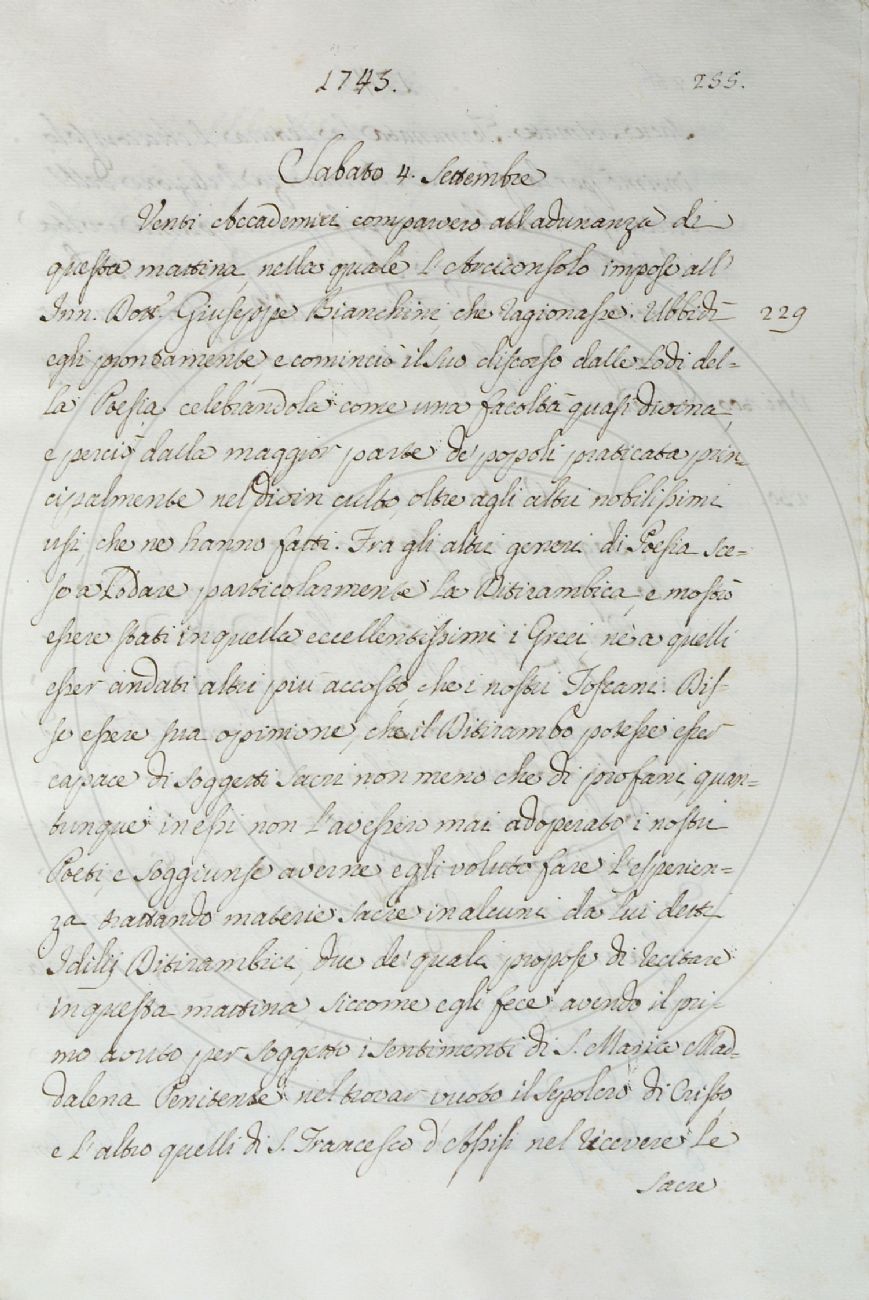 1743.
255.
Sabato 4. Settembre
Venti Accademici comparvero all'adunanza di
questa mattina, nella quale l'Arciconsolo impose all'
Inn. Dott.r Giuseppe Bianchini, che ragionasse. Ubbidì
229
egli prontamente, e cominciò il suo discorso dalle Lodi del=
la Poesia, celebrandola come una facoltà quasi divina,
e perciò dalla maggior parte de' popoli praticata prin
cipalmente nel divin culto, oltre agli altri nobilissimi
usi, che ne hanno fatti. Fra gli altri generi di Poesia sce=
se a Lodare particolarmente la Ditirambica, e mostrò
essere stati in quella eccellentissimi i Greci nè a quelli
esser andati altri più accosto, che i nostri Toscani. Dis=
se essere sua opinione, che il Ditirambo potesse esser
capace di soggetti sacri non meno che di profani, quan=
tunque in essi non l'avesser mai adoperato i nostri
Poeti, e soggiunse averne egli voluto fare l'esperien=
za trattando materie sacre in alcuni da lui detti
Idilij Ditirambici, due de' quali propose di recitare
in questa mattina, siccome egli fece avendo il pri=
mo avuto per soggetto i sentimenti di S. Maria Mad=
dalena Penitente nel trovar vuoto il Sepolcro di Cristo,
e l'altro quelli di S. Francesco d'Assisi nel ricevere le
sacre